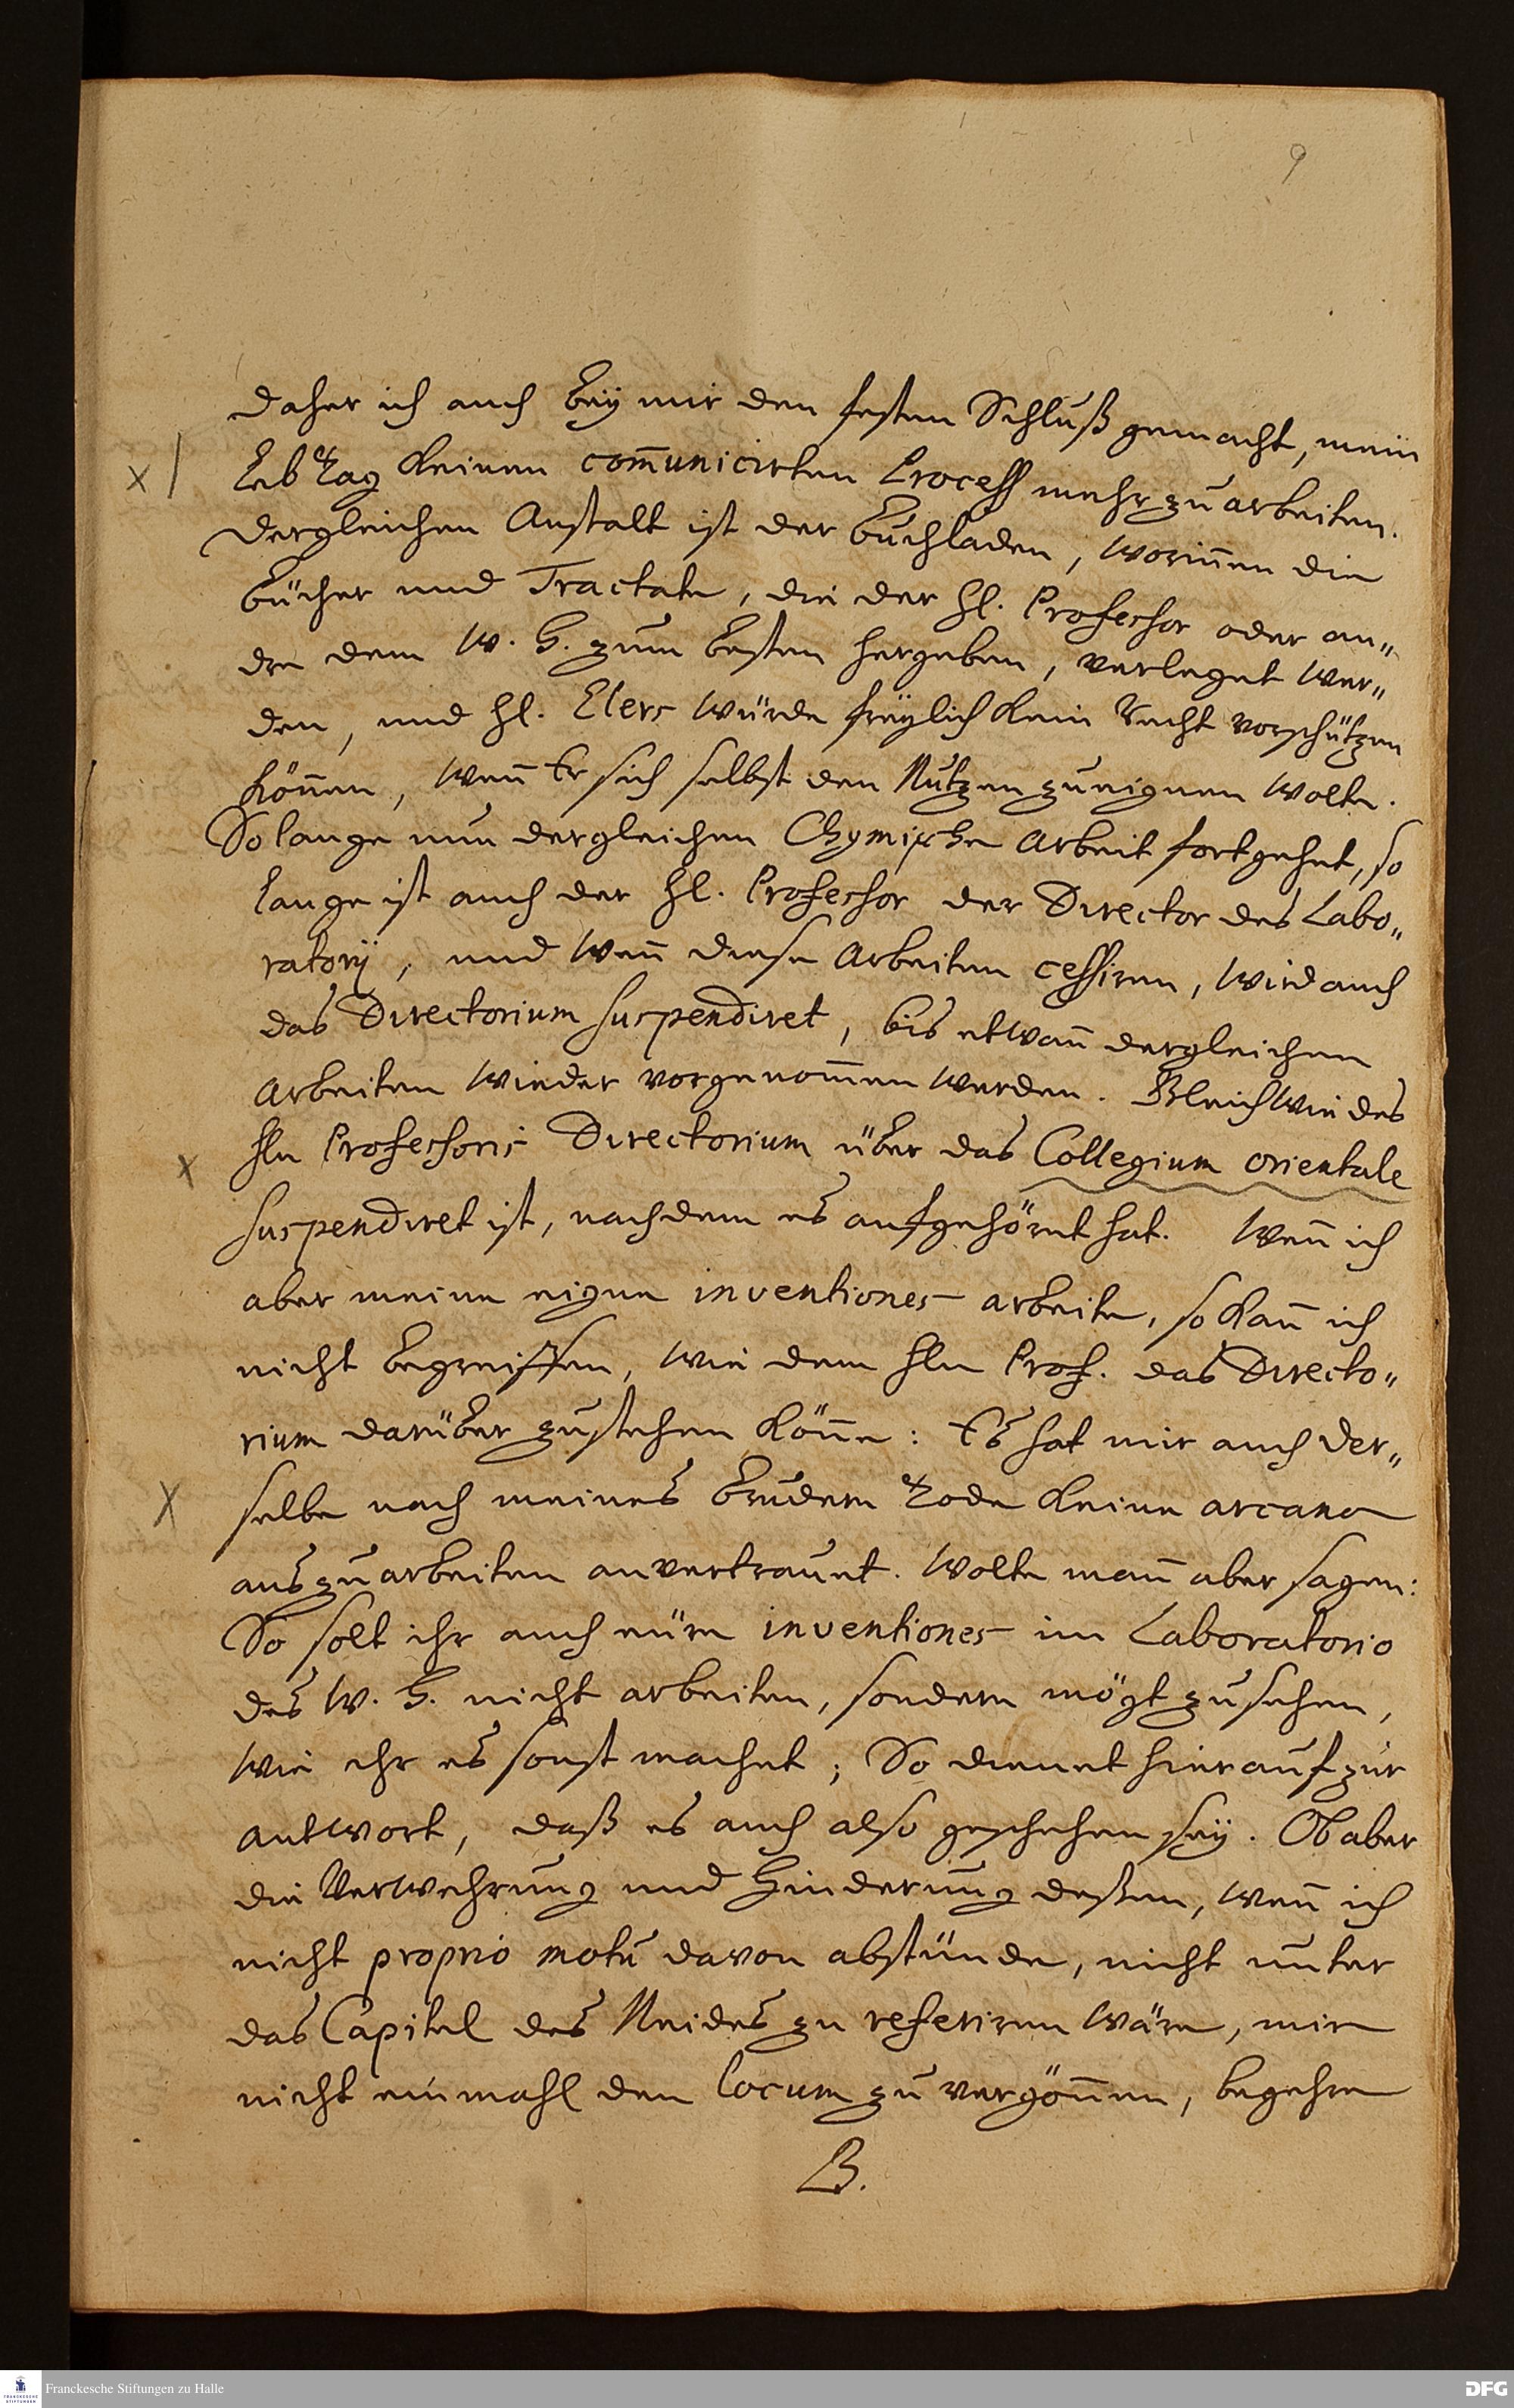 9
daher ich auch bey mir den festen Schluß gemacht, mein
x | Lebtag keinen com̅unicirten Process mehr zu arbeiten.
Dergleichen Anstalt ist der Buchladen, worin̅en die
Bücher und Tractate, die der Hl. Professor oder an„
dre dem W. H. zum besten hergeben, verleget wer„
den, und Hl. Elers würde freylich kein Recht vorschützen
kön̅en, wen̅ Er sich selbst den Nutzen zueignen wolte.
So lange nun dergleichen Chymische Arbeit fortgehet, so
lange ist auch der Hl. Professor der Director des Labo„
ratorij, und wen̅ diese Arbeiten cessiren, wird auch
das Directorium suspendiret, bis etwan̅ dergleichen
Arbeiten wieder vorgenom̅en werden. Gleichwie des
x Hln Professoris Directorium über das Collegium orientale
suspendiret ist, nachdem es aufgehöret hat. Wen̅ ich
aber meine eigne inventiones arbeite, so kan̅ ich
nicht begreiffen, wie dem Hln Prof. das Directo„
rium darüber zustehen kön̅e: Es hat mir auch der„
x selbe nach meines Brudern Tode keine arcana
auszuarbeiten anvertrauet. Wolte man̅ aber sagen:
So solt ihr auch eüre inventiones im Laboratorio
des W. H. nicht arbeiten, sondern mögt zusehen,
wie ihr es sonst machet; So dienet hierauf zur
antwort, daß es auch also geschehen sey. Ob aber
die Verwehrung und Hinderung deßen, wen̅ ich
nicht proprio motu davon abstünde, nicht unter
das Capitel des Neides zu referiren wäre, mir
nicht einmahl den locum zu vergön̅en, begehre
B.
Franckesche Stiftungen zu Halle
DFG